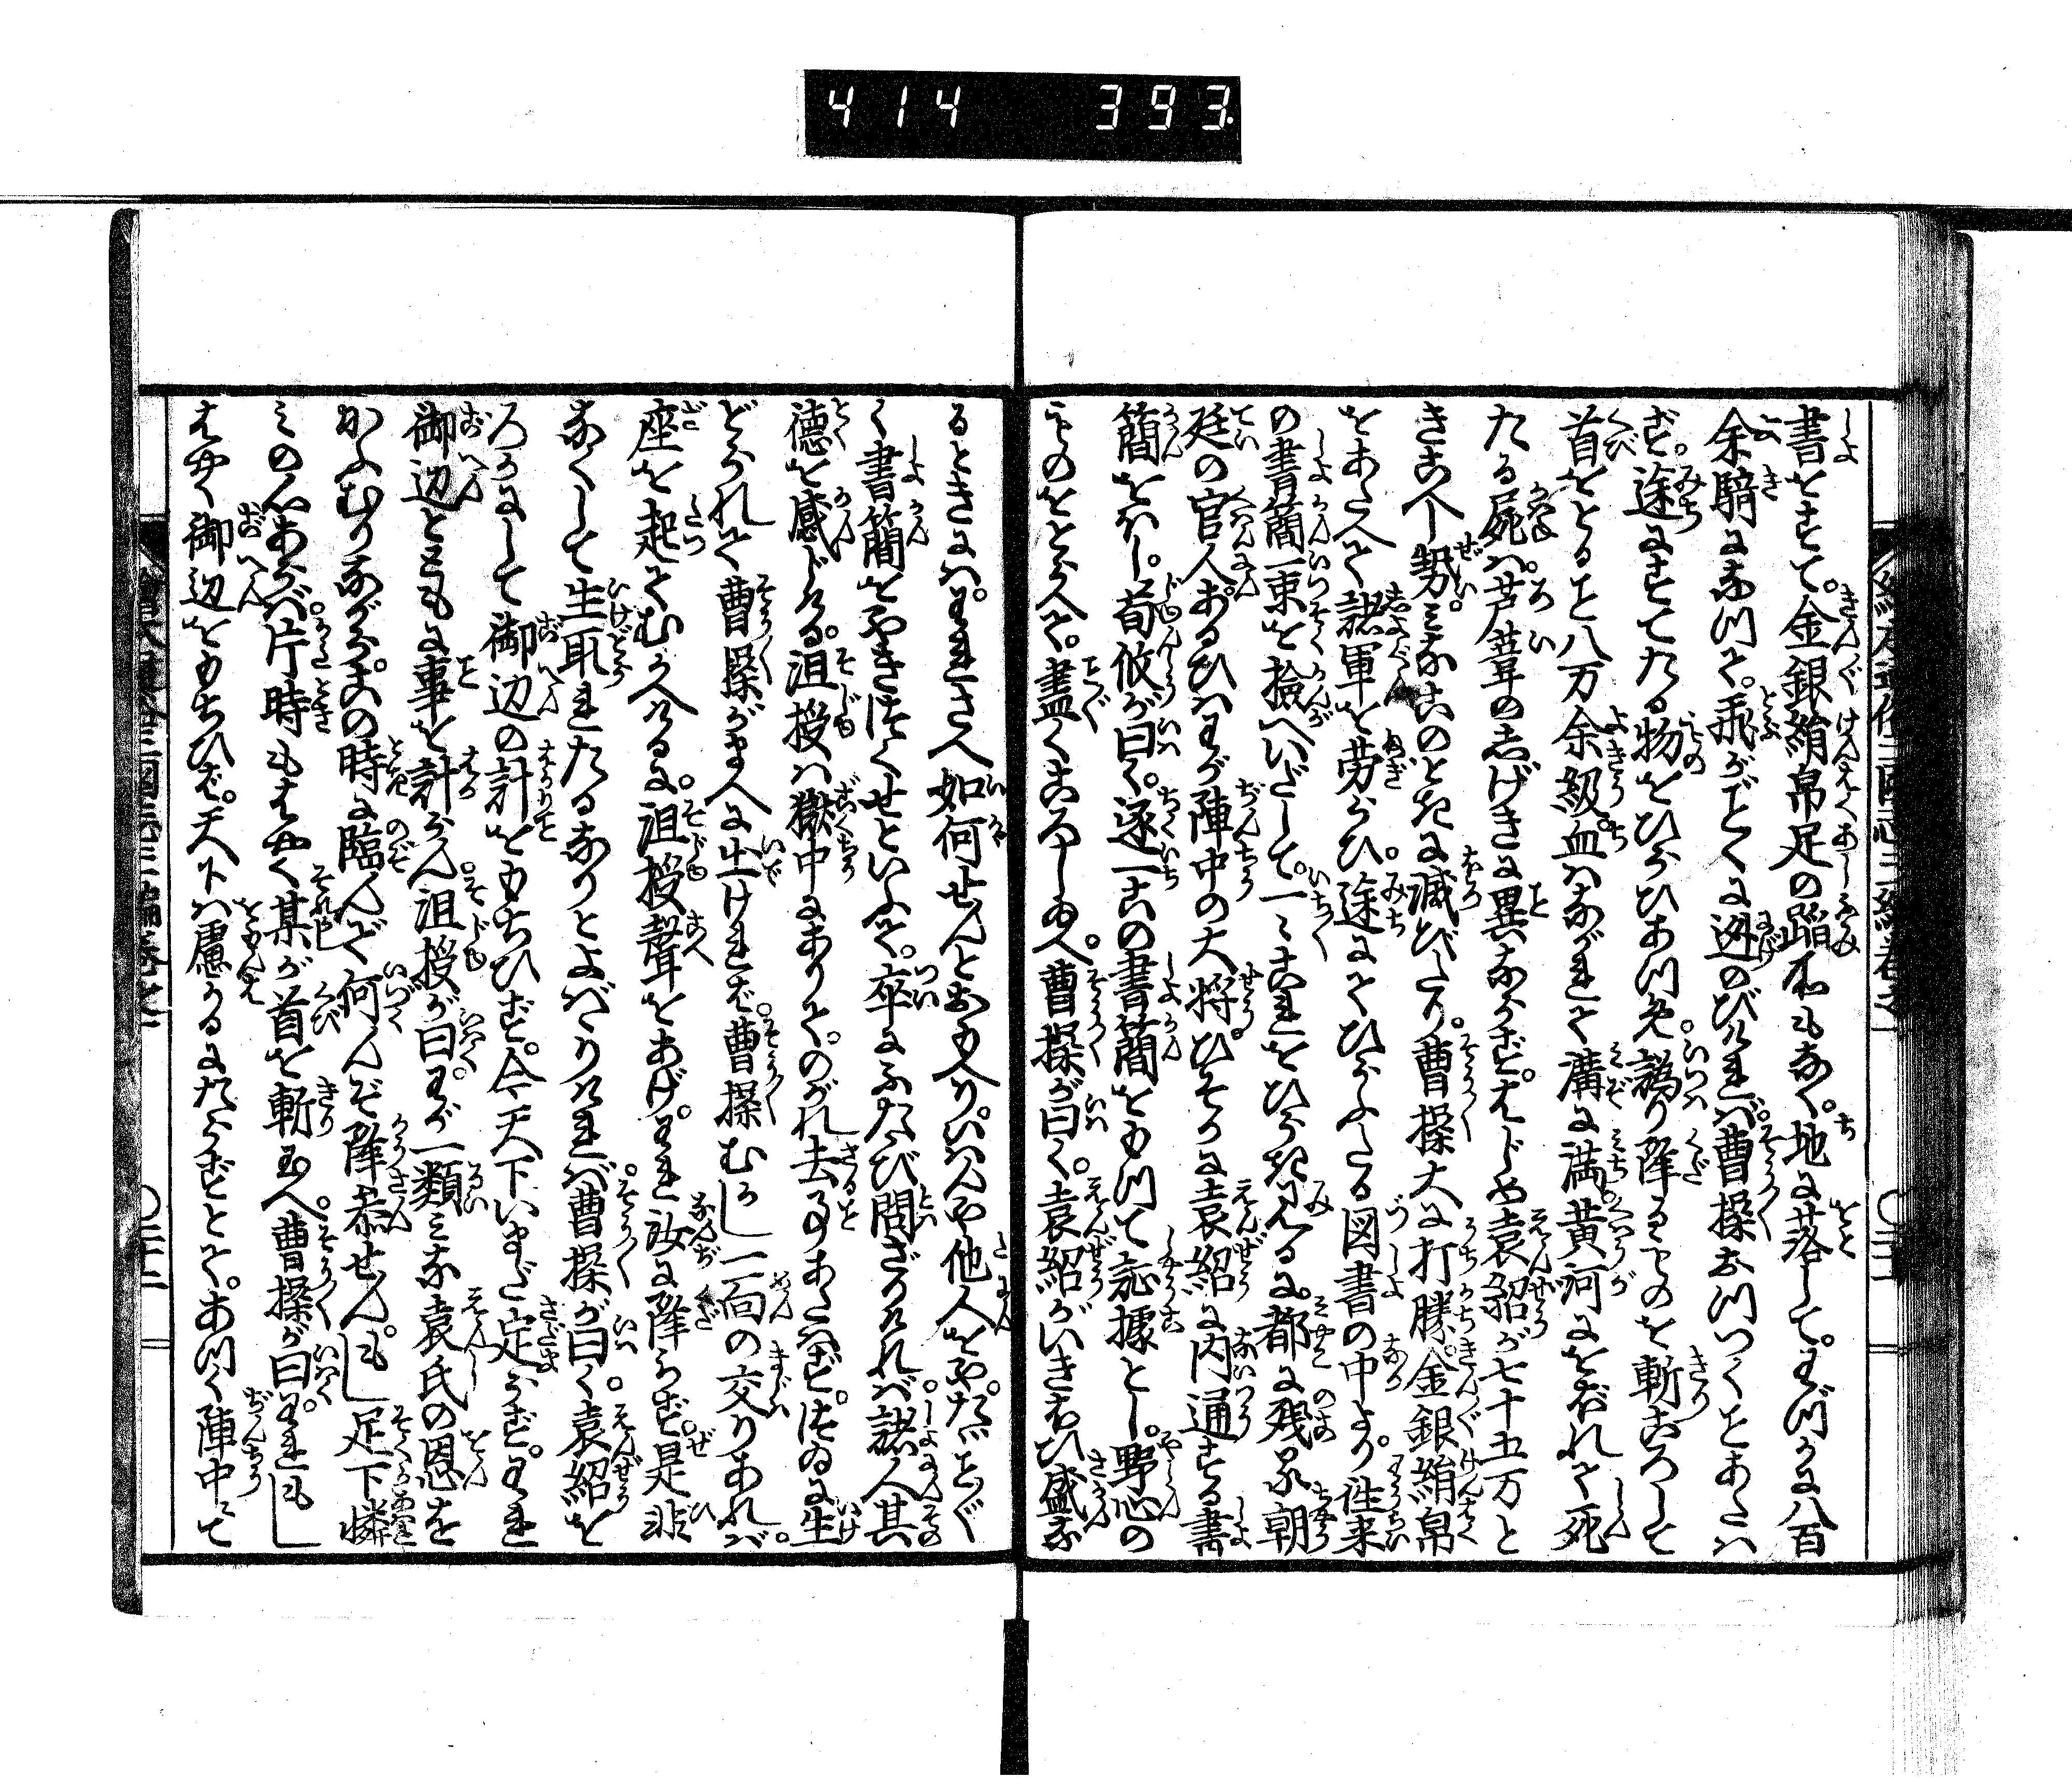 414 393
書をすて。金銀絹帛足の踏所もなく。地に落して。わづかに八百
余騎になつて。飛がごとくに逃のびければ。曹操おつつくことあたは
ず。途にすてたる物をひろひあつめ。偽り降るものを斬ころして
首をとること八万余級。血はながれて溝に満。黄河におぼれて死
たる屍は。芦葦のしげきに異ならず。はじめ袁紹が七十五万と
きこへし勢。みなこのときに滅びたり。曹操大に打勝。金銀絹帛
をあたへて諸軍を労らひ。途にてひろふたる図書の中より。往来
の書簡一束を撿へいだして。一々これをひらき見るに。都に残る朝
廷の官人。あるひはわが陣中の大将。ひそかに袁紹に内通する書
簡をほし。荀攸が曰く。逐一この書簡をもつて証據とし。野心の
ものをとらへて。盡くころし玉へ。曹操が曰く。袁紹がいきほひ盛な
るときには。われさへ如何せんとおもへり。いはんや他人をや。たゞとく
く書簡をやきほろくせといふて。卒にふたゝび問ざりければ。諸人其
徳を感じける。沮授は獄中にありて。のがれ去ことあたはず。つゐに生
どられて曹操がまへに出ければ。曹操むかし一面の交りあれば。
座を起てむかへけるに。沮授聲をあげ。われ汝に降らず。是非
なくして生取れたるなりとよばゝりければ。曹操が曰く。袁紹を
ろかにして御辺の計をもちひず。今天下いまだ定らず。われ
御辺とともに事を計らん。沮授が曰く。わが一類みな袁氏の恩を
かふむりながら。この時に臨んで何んぞ降参せん。もし足下憐
みの心あらば。片時もはやく某が首を斬玉へ。曹操が曰く。われもし
はやく御辺をもちひば。天下は慮るにたらずとて。あつく陣中にて